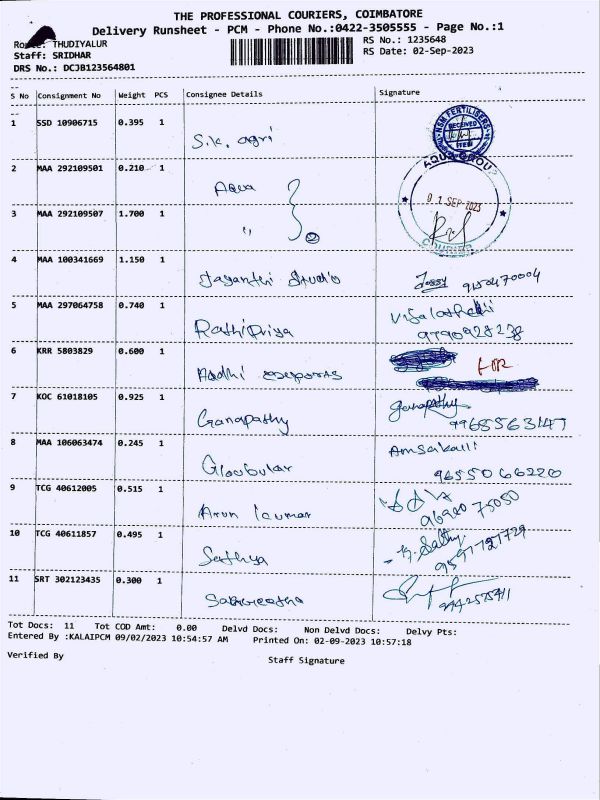 THE PROFESSIONAL COURIERS, COIMBATORE
Delivery Runsheet - PCM - Phone No.:0422-3505555 - Page No.:1
THUDIYALUR
RS No.: 1235648
Staff: SRIDHAR
RS Date: 02-Sep-2023
DRS No.: DCJB123564801
S No Consignment No Weight PCS Consignee Details Signature
1 SSD 10906715 0.395 1 S.K. agri
NSN FERTILISERS RECEIVED
2 MAA 292109501 0.210 1 Aqua
AQUA GROUP
01 SEP 2023
COURIER
3 MAA 292109507 1.700 1 "
4 MAA 100341669 1.150 1 Jayanthi Studio
5 MAA 297064758 0.740 1 Rathipriya
9790928238
6 KRR 5803829 0.600 1 Aadhi exports
7 KOC 61018105 0.925 1 Ganapathy ganapathy
8 MAA 106063474 0.245 1 Gloubular
9655066220
9 TCG 40612005 0.515 1 Arun kumar
10 TCG 40611857 0.495 1 Sathya
11 SRT 302123435 0.300 1
Tot Docs: 11 Tot COD Amt: 0.00 Delvd Docs: Non Delvd Docs: Delvy Pts:
Entered By :KALAIPCM 09/02/2023 10:54:57 AM Printed On: 02-09-2023 10:57:18
Verified By
Staff Signature